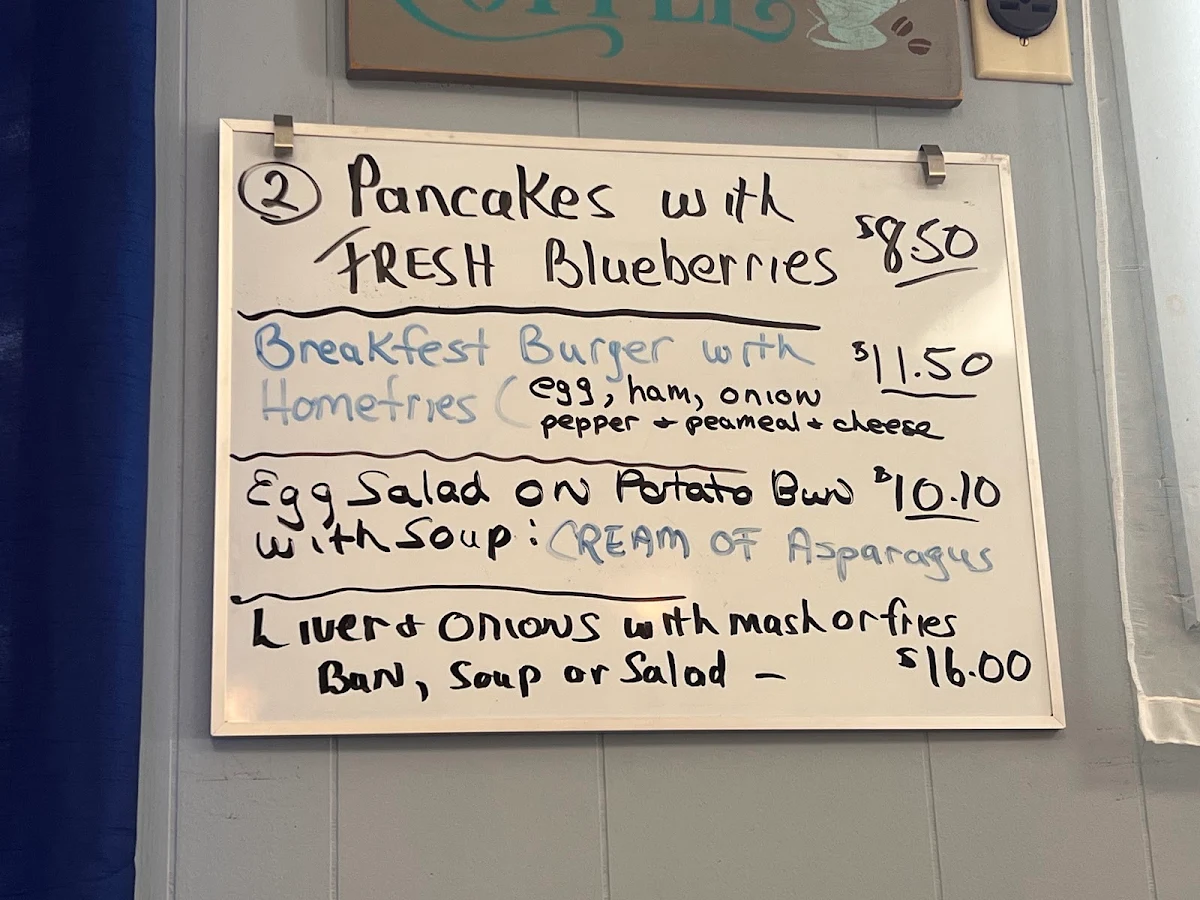 ② Pancakes with
FRESH Blueberries $8.50
Breakfest Burger with $11.50
Homefries ( egg, ham, onion
pepper + peameal + cheese
Egg Salad on Potato Bun $10.10
with Soup: CREAM OF Asparagus
Liver + Onions with mash or fries
Bun, Soup or Salad — $16.00